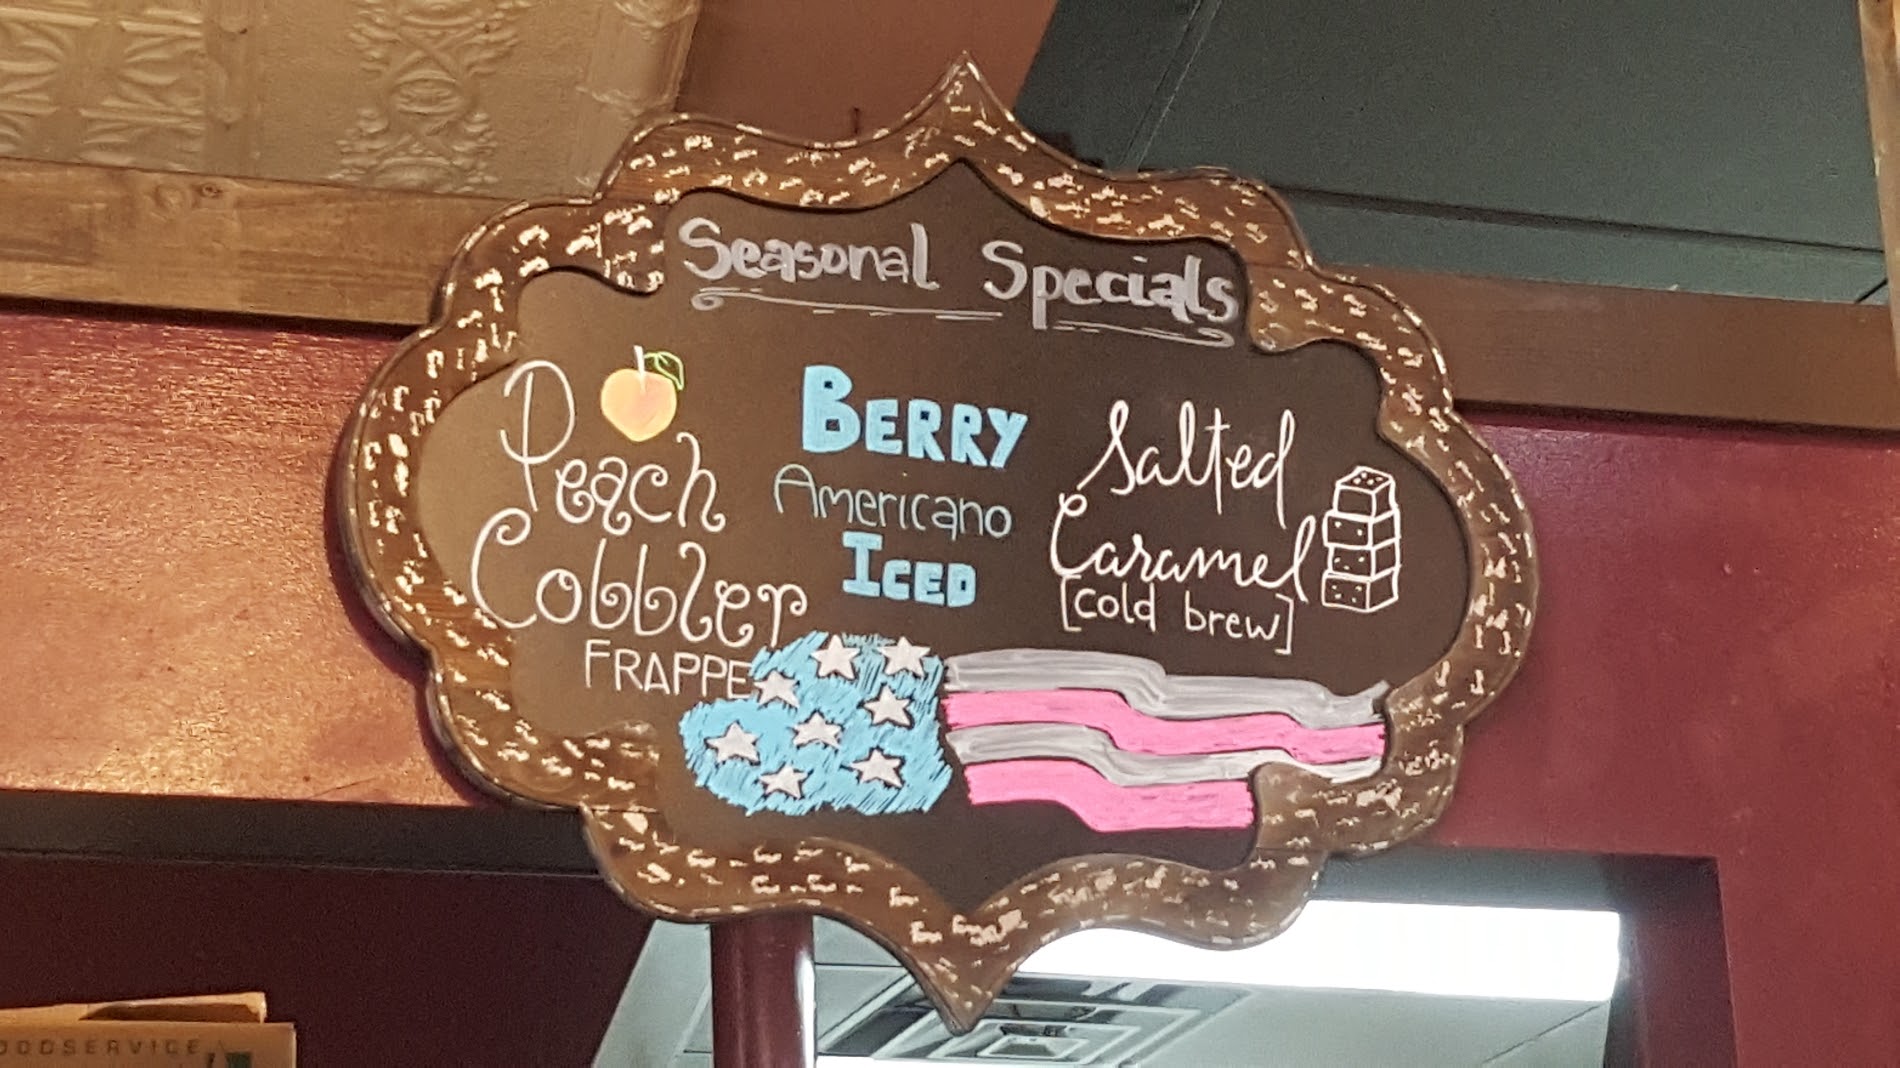 Seasonal Specials
Peach
Cobbler
FRAPPE
BERRY
Americano
ICED
Salted
Caramel
[cold brew]